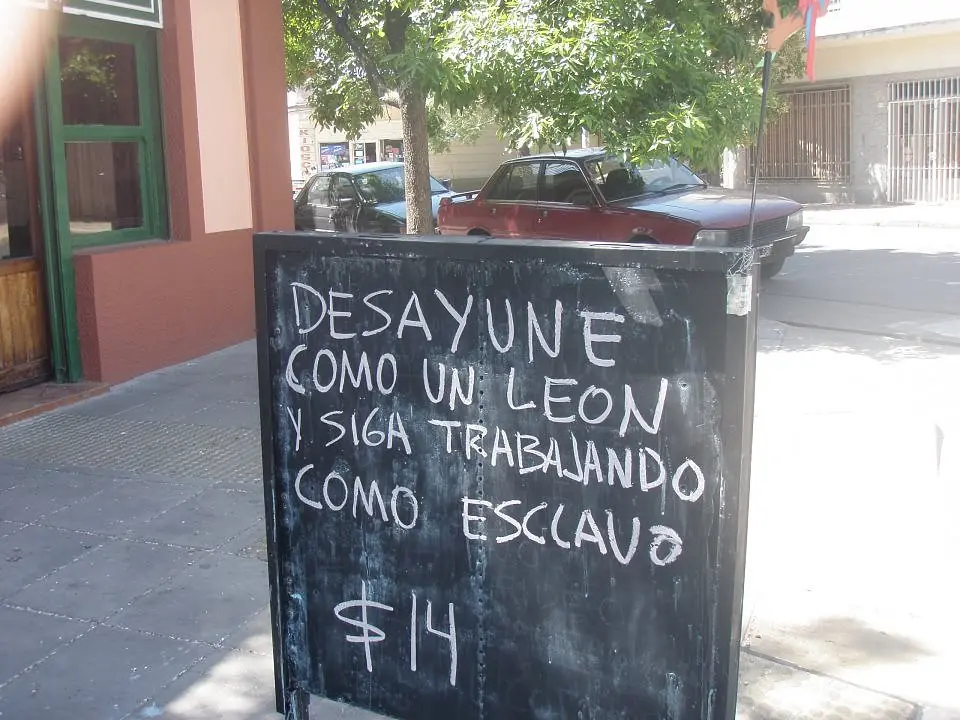 DESAYUNE
COMO UN LEON
Y SIGA TRABAJANDO
COMO ESCLAVO
$14
KIOSC